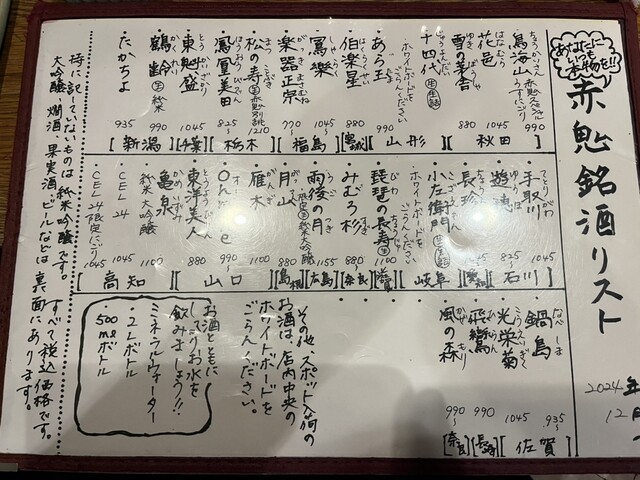 あなたにいつも本物を!!
赤鬼銘酒リスト
2024年
12月
鳥海山 ちょうかいさん 赤鬼スペシャル うすにごり 990
花邑 はなむら
雪の茅舎 ゆき ぼうしゃ 880
1045
[秋田]
十四代 じゅうよんだい 生詰
ホワイトボードをごらんください
あら玉 990
[山形]
伯楽星 はくらくせい 880
[宮城]
冩樂 しゃらく 1045
楽器正宗 がっきまさむね 770〜
[福島]
松の寿 まつ ことぶき 赤鬼別誂 1210
鳳凰美田 ほうおうびでん 825〜
[栃木]
東魁盛 とうかいざかり 1045
[千葉]
鶴齢 かくれい 生 純米 990
たかちよ 935
[新潟]
手取川 てどりがわ 1045
遊穂 ゆうほ 825
[石川]
長珍 ちょうちん 880
[愛知]
小左衛門 こざえもん 生詰
ホワイトボードをごらんください
[岐阜]
琵琶の長寿 びわ ちょうじゅ 生 1100
[滋賀]
みむろ杉 すぎ 880〜
[奈良]
雨後の月 うご つき 1155
[広島]
月山 がっさん 純米大吟醸 880
[島根]
雁木 がんぎ 1100
Ohmine
東洋美人 とうようびじん 880〜
[山口]
亀泉 かめいずみ
純米大吟醸 1100
CEL24 1045
CEL24限定にごり 1045
[高知]
鍋島 なべしま 935〜
光栄菊 こうえいぎく 1045
[佐賀]
飛鸞 ひらん 990
[長崎]
風の森 かぜ もり 990〜
[奈良]
その他、スポット入荷の
お酒は、店内中央の
ホワイトボードを
ごらんください。
お酒とともに
しっかりお水を
飲みましょう!!
ミネラルウォーター
・2Lボトル
・500mlボトル
特に記していないものは純米吟醸です。すべて税込価格です。
大吟醸、燗酒、果実酒、ビールなどは裏面にあります。